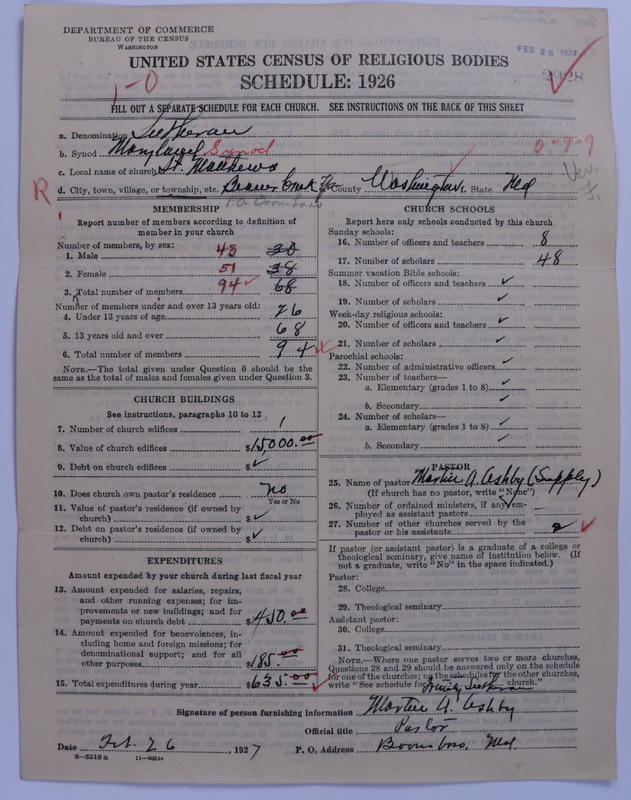 DEPARTMENT OF COMMERCE
BUREAU OF THE CENSUS
WASHINGTON
FEB 28 1927
UNITED STATES CENSUS OF RELIGIOUS BODIES
SCHEDULE: 1926
1-0
FILL OUT A SEPARATE SCHEDULE FOR EACH CHURCH. SEE INSTRUCTIONS ON THE BACK OF THIS SHEET
a. Denomination Lutheran
b. Synod Maryland Synod
0-7-9
c. Local name of church St. Matthews
R
d. City, town, village, or township, etc. Beaver Creek County Washington State Md
P.O. Boonsboro
MEMBERSHIP
Report number of members according to definition of member in your church
Number of members, by sex:
1. Male 43 30
2. Female 51 38
3. Total number of members 94 ✓ 68
Number of members under and over 13 years old:
4. Under 13 years of age 26
5. 13 years old and over 68
6. Total number of members 94
NOTE.—The total given under Question 6 should be the same as the total of males and females given under Question 3.
CHURCH BUILDINGS
See instructions, paragraphs 10 to 12
7. Number of church edifices 1
8. Value of church edifices $15000.00
9. Debt on church edifices $ ✓
10. Does church own pastor's residence no
Yes or No
11. Value of pastor's residence (if owned by church) $ ✓
12. Debt on pastor's residence (if owned by church) $ ✓
EXPENDITURES
Amount expended by your church during last fiscal year
13. Amount expended for salaries, repairs, and other running expenses; for improvements or new buildings; and for payments on church debt $450.00
14. Amount expended for benevolences, including home and foreign missions; for denominational support; and for all other purposes $185.00
15. Total expenditures during year $635.00 ✓
CHURCH SCHOOLS
Report here only schools conducted by this church
Sunday schools:
16. Number of officers and teachers 8
17. Number of scholars 48
Summer vacation Bible schools:
18. Number of officers and teachers ✓
19. Number of scholars ✓
Week-day religious schools:
20. Number of officers and teachers ✓
21. Number of scholars ✓
Parochial schools:
22. Number of administrative officers ✓
23. Number of teachers—
a. Elementary (grades 1 to 8) ✓
b. Secondary ✓
24. Number of scholars—
a. Elementary (grades 1 to 8) ✓
b. Secondary ✓
PASTOR
25. Name of pastor A. Ashby (Supply)
(If church has no pastor, write "None")
26. Number of ordained ministers, if any, employed as assistant pastors —
27. Number of other churches served by the pastor or his assistants 2 ✓
If pastor (or assistant pastor) is a graduate of a college or theological seminary, give name of institution below. (If not a graduate, write "No" in the space indicated.)
Pastor:
28. College
29. Theological seminary
Assistant pastor:
30. College
31. Theological seminary
NOTE.—Where one pastor serves two or more churches, Questions 28 and 29 should be answered only on the schedule for one of the churches; on the schedules for the other churches, write "See schedule for Trinity Lutheran church."
Signature of person furnishing information A. Ashby
Official title Pastor
Date Feb. 26, 1927
P. O. Address Boonsboro, Md.
8—5518 a